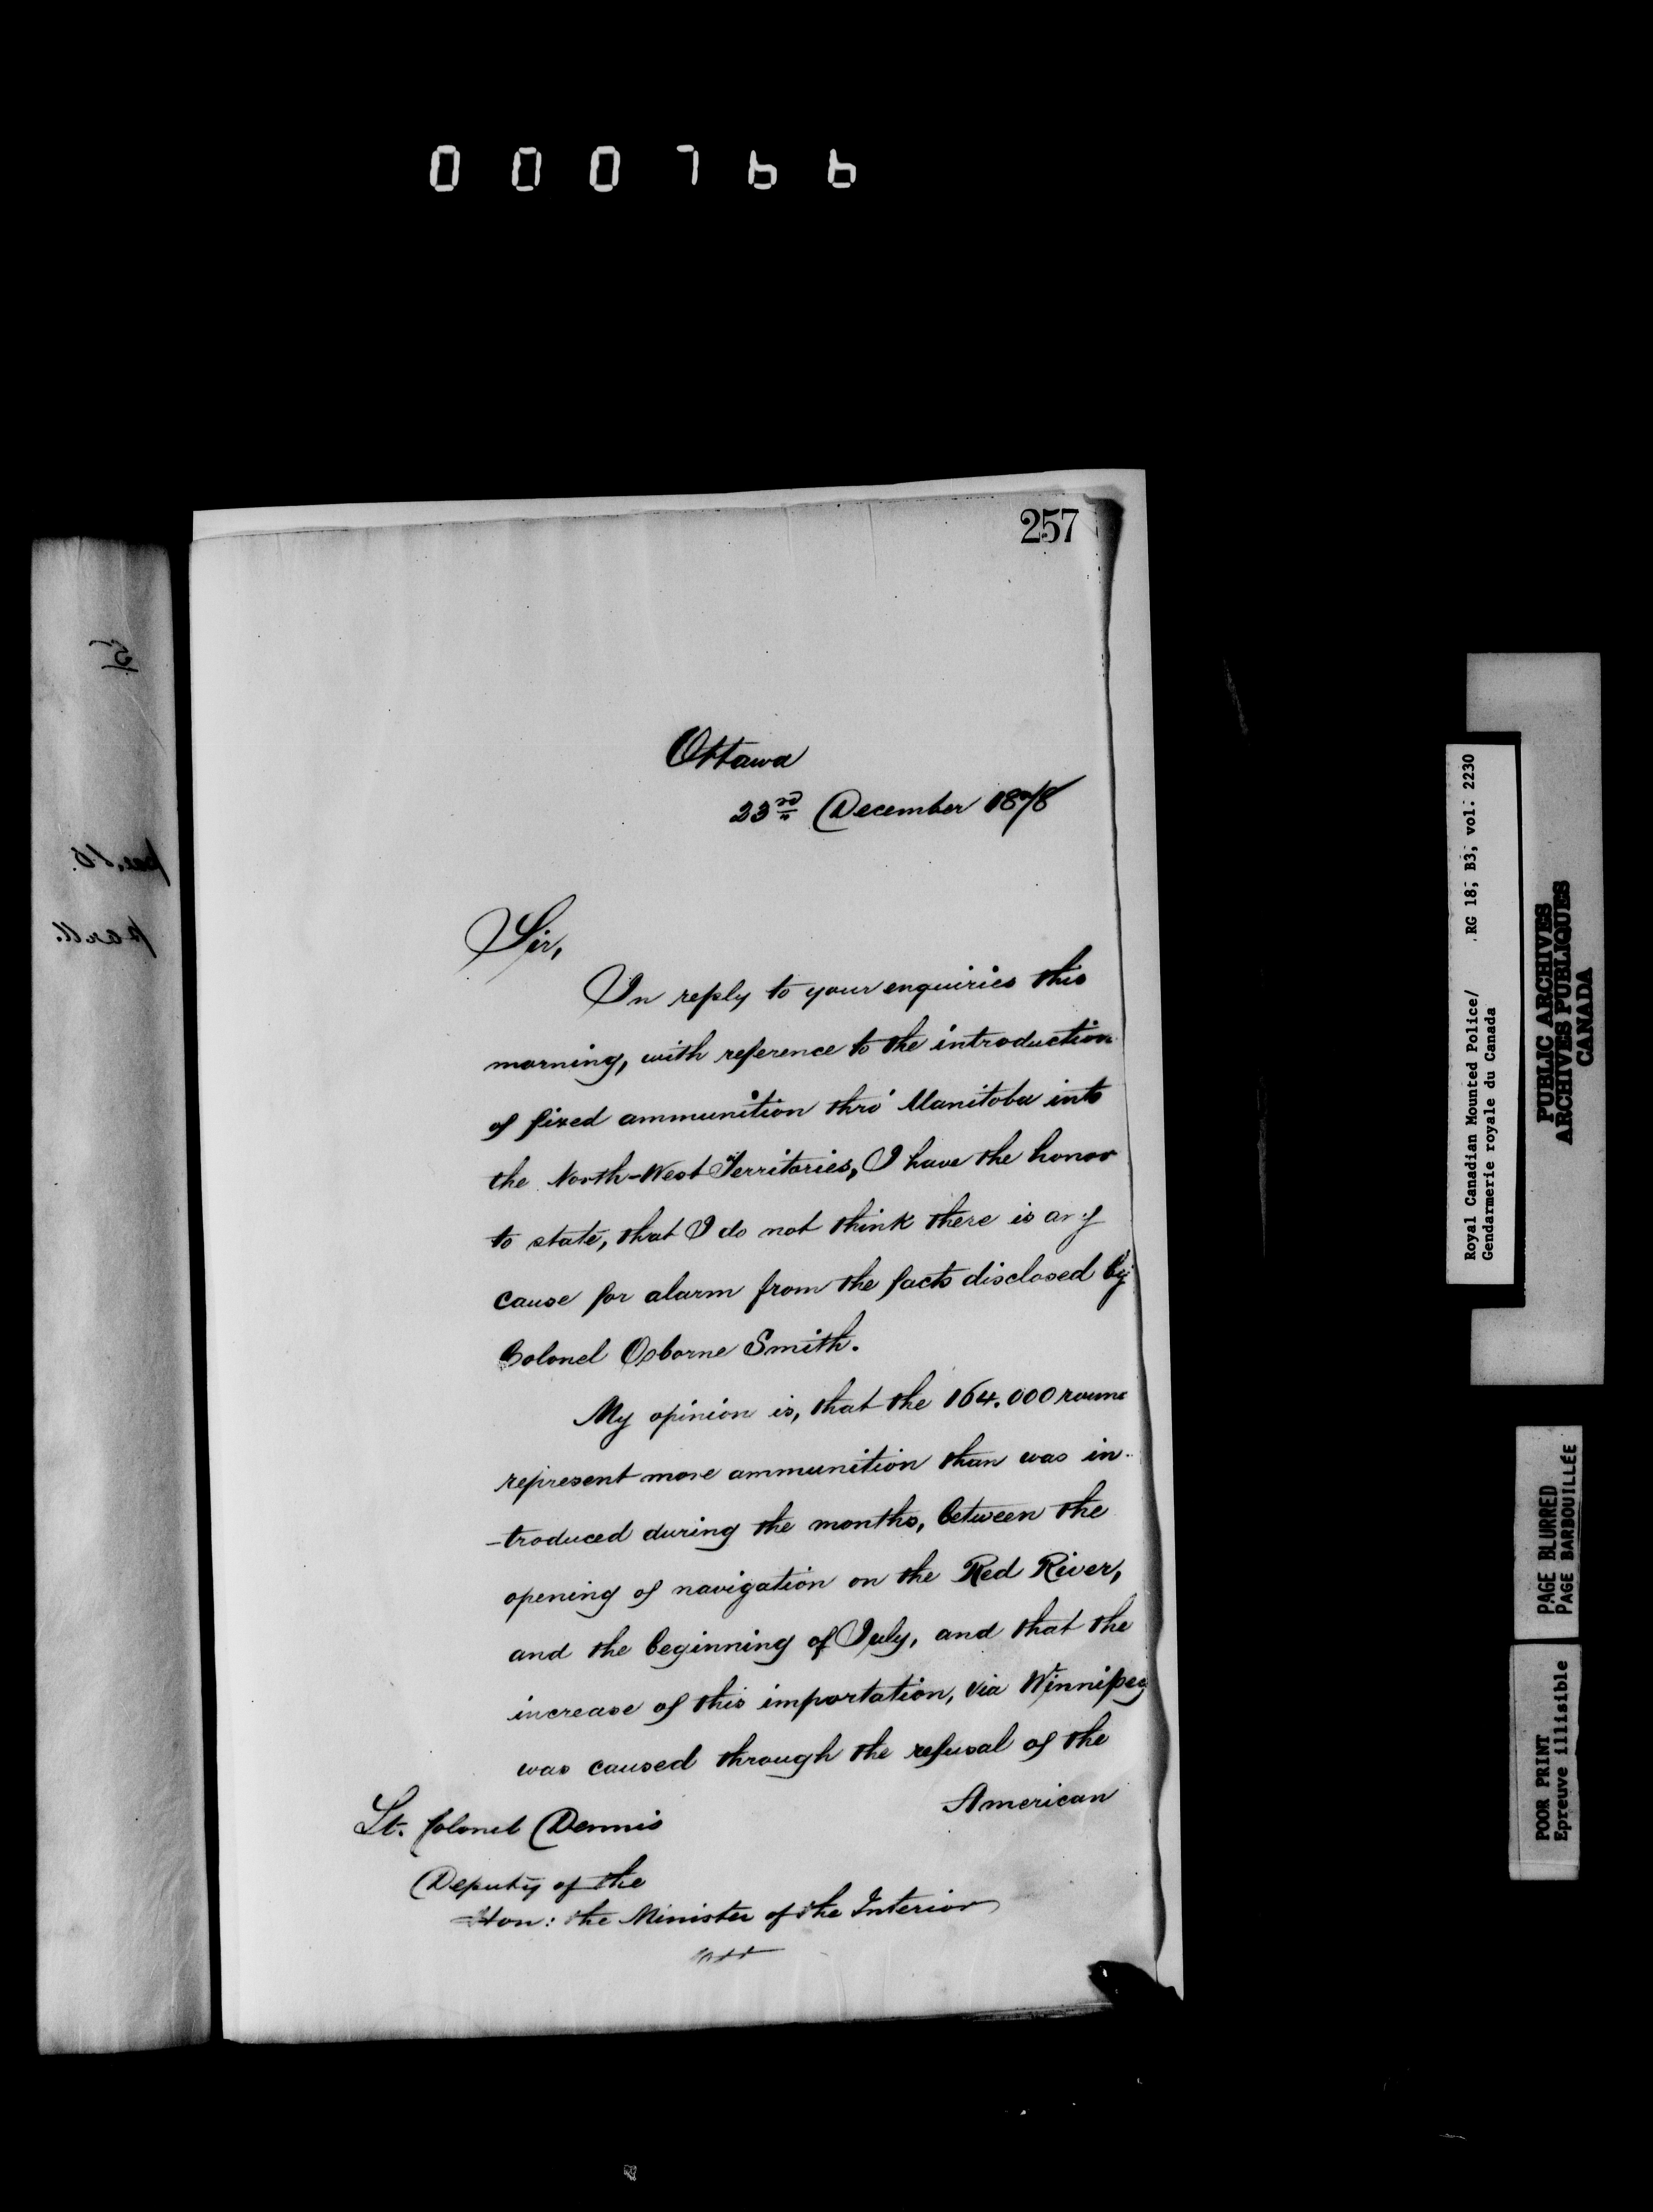 000766
257
Ottawa
23rd December 1878
Sir,
In reply to your enquiries this
morning, with reference to the introduction
of fixed ammunition thro' Manitoba into
the North-West Territories, I have the honor
to state, that I do not think there is any
cause for alarm from the facts disclosed by
Colonel Osborne Smith.
My opinion is, that the 164.000 roun
represent more ammunition than was in-
-troduced during the months, between the
opening of navigation on the Red River,
and the beginning of July, and that the
increase of this importation, via Winnipeg
was caused through the refusal of the
American
Lt. Colonel Dennis
Deputy of the
Hon: the Minister of the Interior
Royal Canadian Mounted Police/ RG 18, B3, vol. 2230
Gendarmerie royale du Canada
PUBLIC ARCHIVES
ARCHIVES PUBLIQUES
CANADA
PAGE BLURRED
PAGE BARBOUILLÉE
POOR PRINT
Epreuve illisible